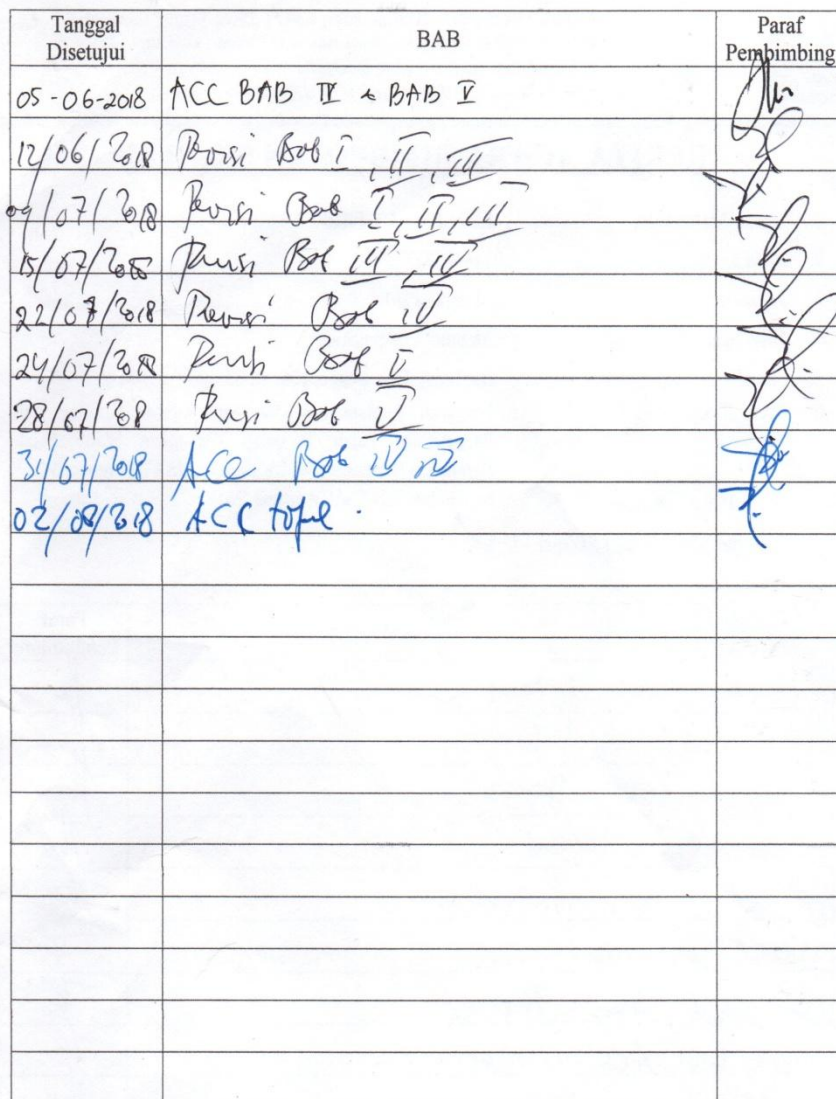 Tanggal Disetujui BAB Paraf Pembimbing
05-06-2018 ACC BAB IV & BAB V
12/06/2018 Revisi Bab I, II, III
09/07/2018 Revisi Bab I, II, III
15/07/2018 Revisi Bab III, IV
22/07/2018 Revisi Bab IV
24/07/2018 Revisi Bab V
28/07/2018 Revisi Bab V
31/07/2018 ACC Bab IV
02/08/2018 ACC